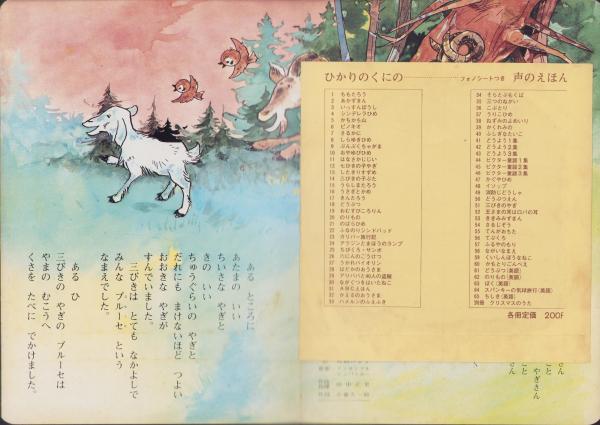 ある ところに
あたまの いい
ちいさな やぎと
きの いい
ちゅうぐらいの やぎと
だれにも まけないほど つよい
おおきな やぎが
すんでいました。
三びきは とても なかよしで
みんな ブルーセ という
なまえでした。
ある ひ
三びきの やぎの ブルーセは
やまの むこうへ
くさを たべに でかけました。
ひかりのくにの フォノシートつき 声のえほん
1 ももたろう
2 あかずきん
3 いっすんぼうし
4 シンデレラひめ
5 かちかち山
6 ピノキオ
7 さるかに
8 しらゆきひめ
9 ぶんぶくちゃがま
10 おやゆびひめ
11 はなさかじじい
12 七ひきの子やぎ
13 したきりすずめ
14 三びきの子ぶた
15 うらしまたろう
16 うさぎとかめ
17 きんたろう
18 どうぶつ
19 おむすびころりん
20 のりもの
21 のばらひめ
22 ふなのりシンドバッド
23 ガリバー旅行記
24 アラジンとまほうのランプ
25 ちびくろ・サンボ
26 にんぎょひめ
27 うかれバイオリン
28 はだかのおうさま
29 アリババと40人の盗賊
30 ながぐつをはいたねこ
32 かえるのおうさま
33 ハメルンのふえふき
34 そらとぶもくば
35 三つのねがい
36 こぶとり
37 うりこひめ
38 ねずみのよめいり
39 かくれみの
40 ふしぎなたいこ
41 どうよう1集
42 どうよう2集
43 どうよう3集
44 ビクター童謡1集
45 ビクター童謡2集
46 ビクター童謡3集
47 かぐやひめ
48 イソップ
49 消防じどうしゃ
50 どうぶつえん
51 三びきのやぎ
52 王さまの耳はロバの耳
53 ききみみずきん
54 さるじぞう
55 てんがおもた
56 てぶくろ
57 ふるやのもり
58 ながいなまえ
59 くいしんぼうなねこ
60 かもとりごんべえ
61 どうぶつ(英語)
62 のりもの(英語)
63 ぼく(英語)
64 スパンキーの気球旅行(英語)
65 ちしき(英語)
別冊 クリスマスのうた
各冊定価 200F